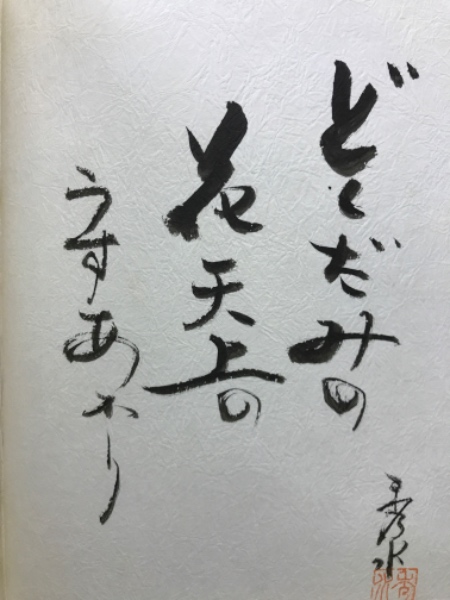 どくだみの
花天上の
うすあかり
秀水